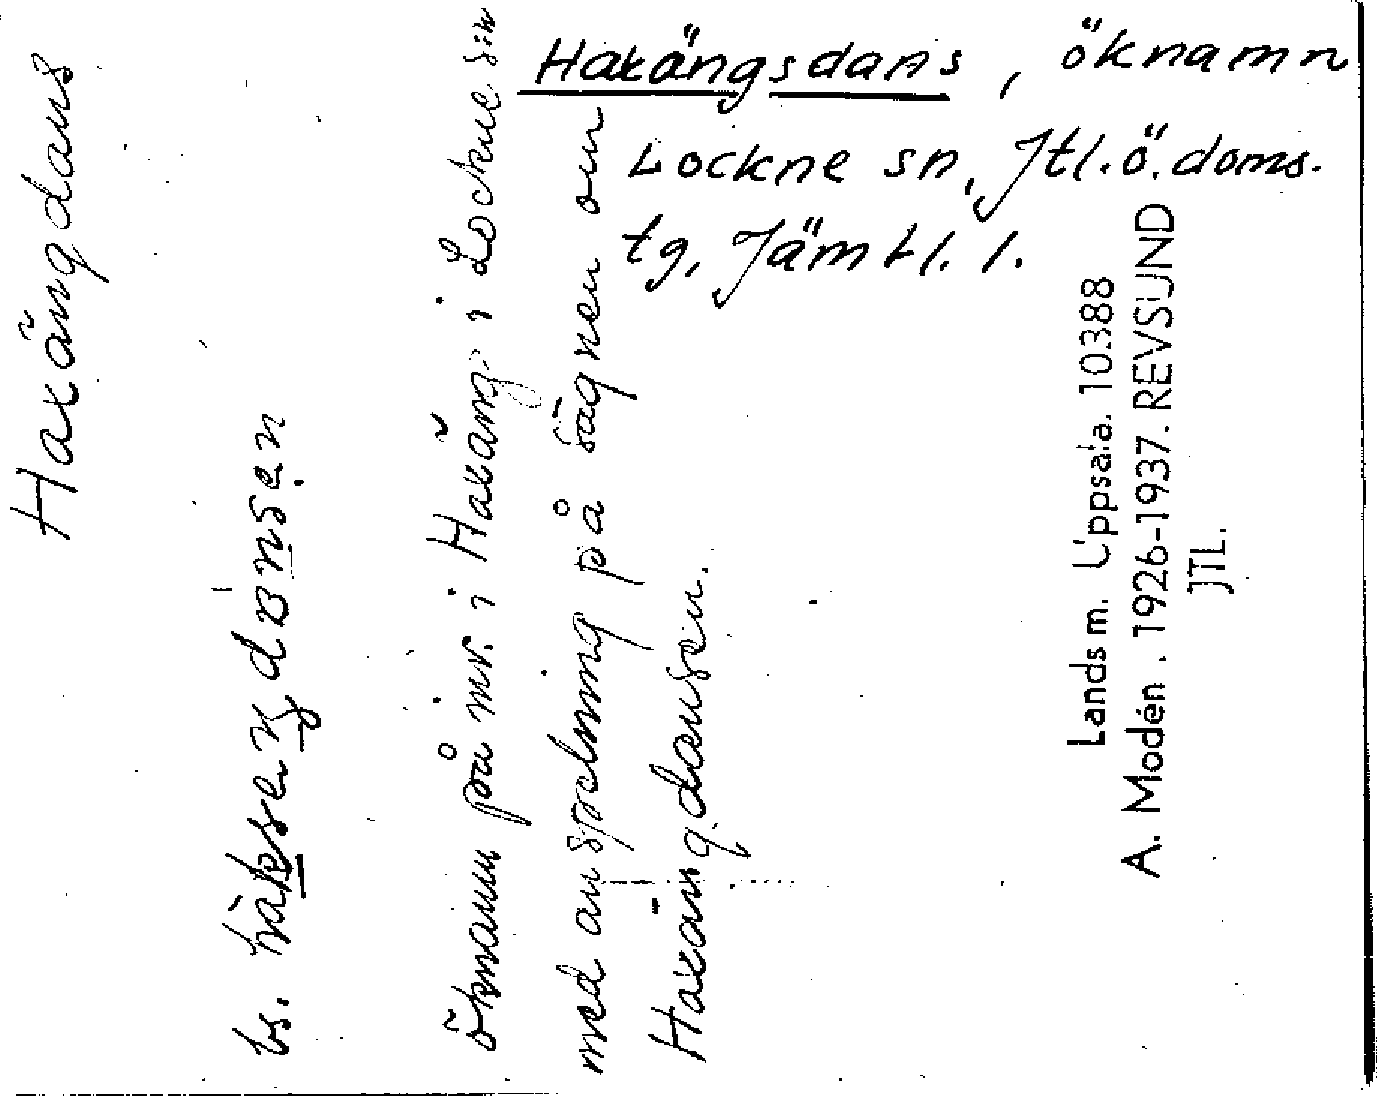 Haxängsdans, öknamn
Lockne sn, Jtl. ö. doms.
tg, Jämtl. l.
Haxängdans
bs.
öknamn på inv. i Haxäng i Lockne sn
med anspelning på sägnen om
Haxängdansen.
Landsm. Uppsala. 10388
A. Modén. 1926-1937. REVSUND
JTL.